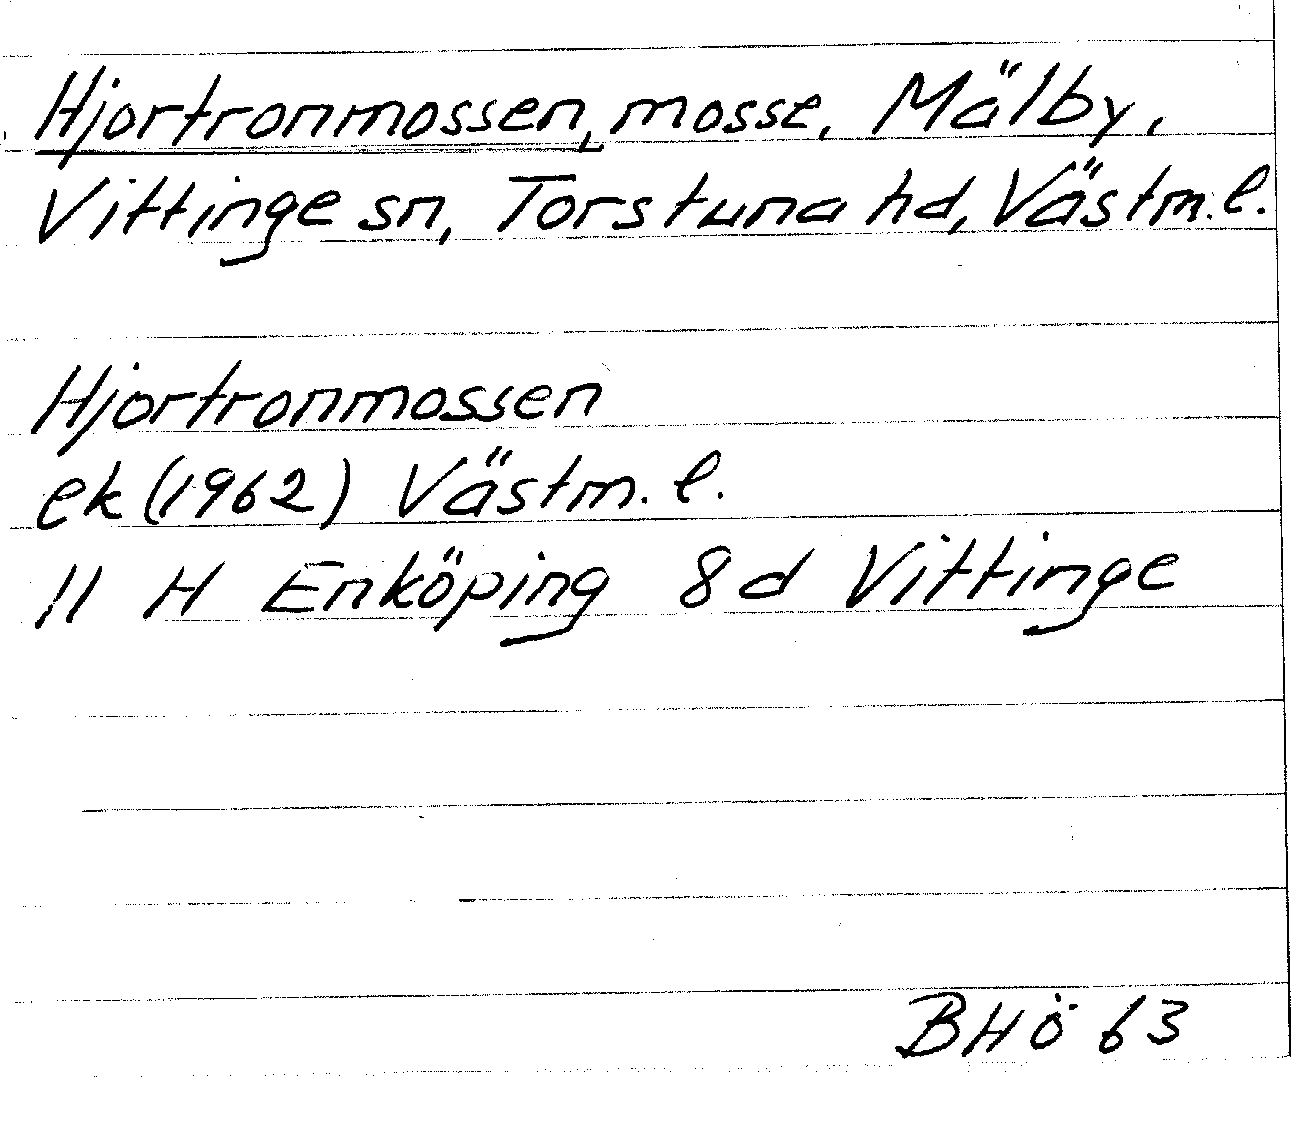 Hjortronmossen, mosse, Mälby,
Vittinge sn, Torstuna hd, Västm. l.
Hjortronmossen
ek (1962) Västm. l.
11 H Enköping 8 d Vittinge
BHö 63